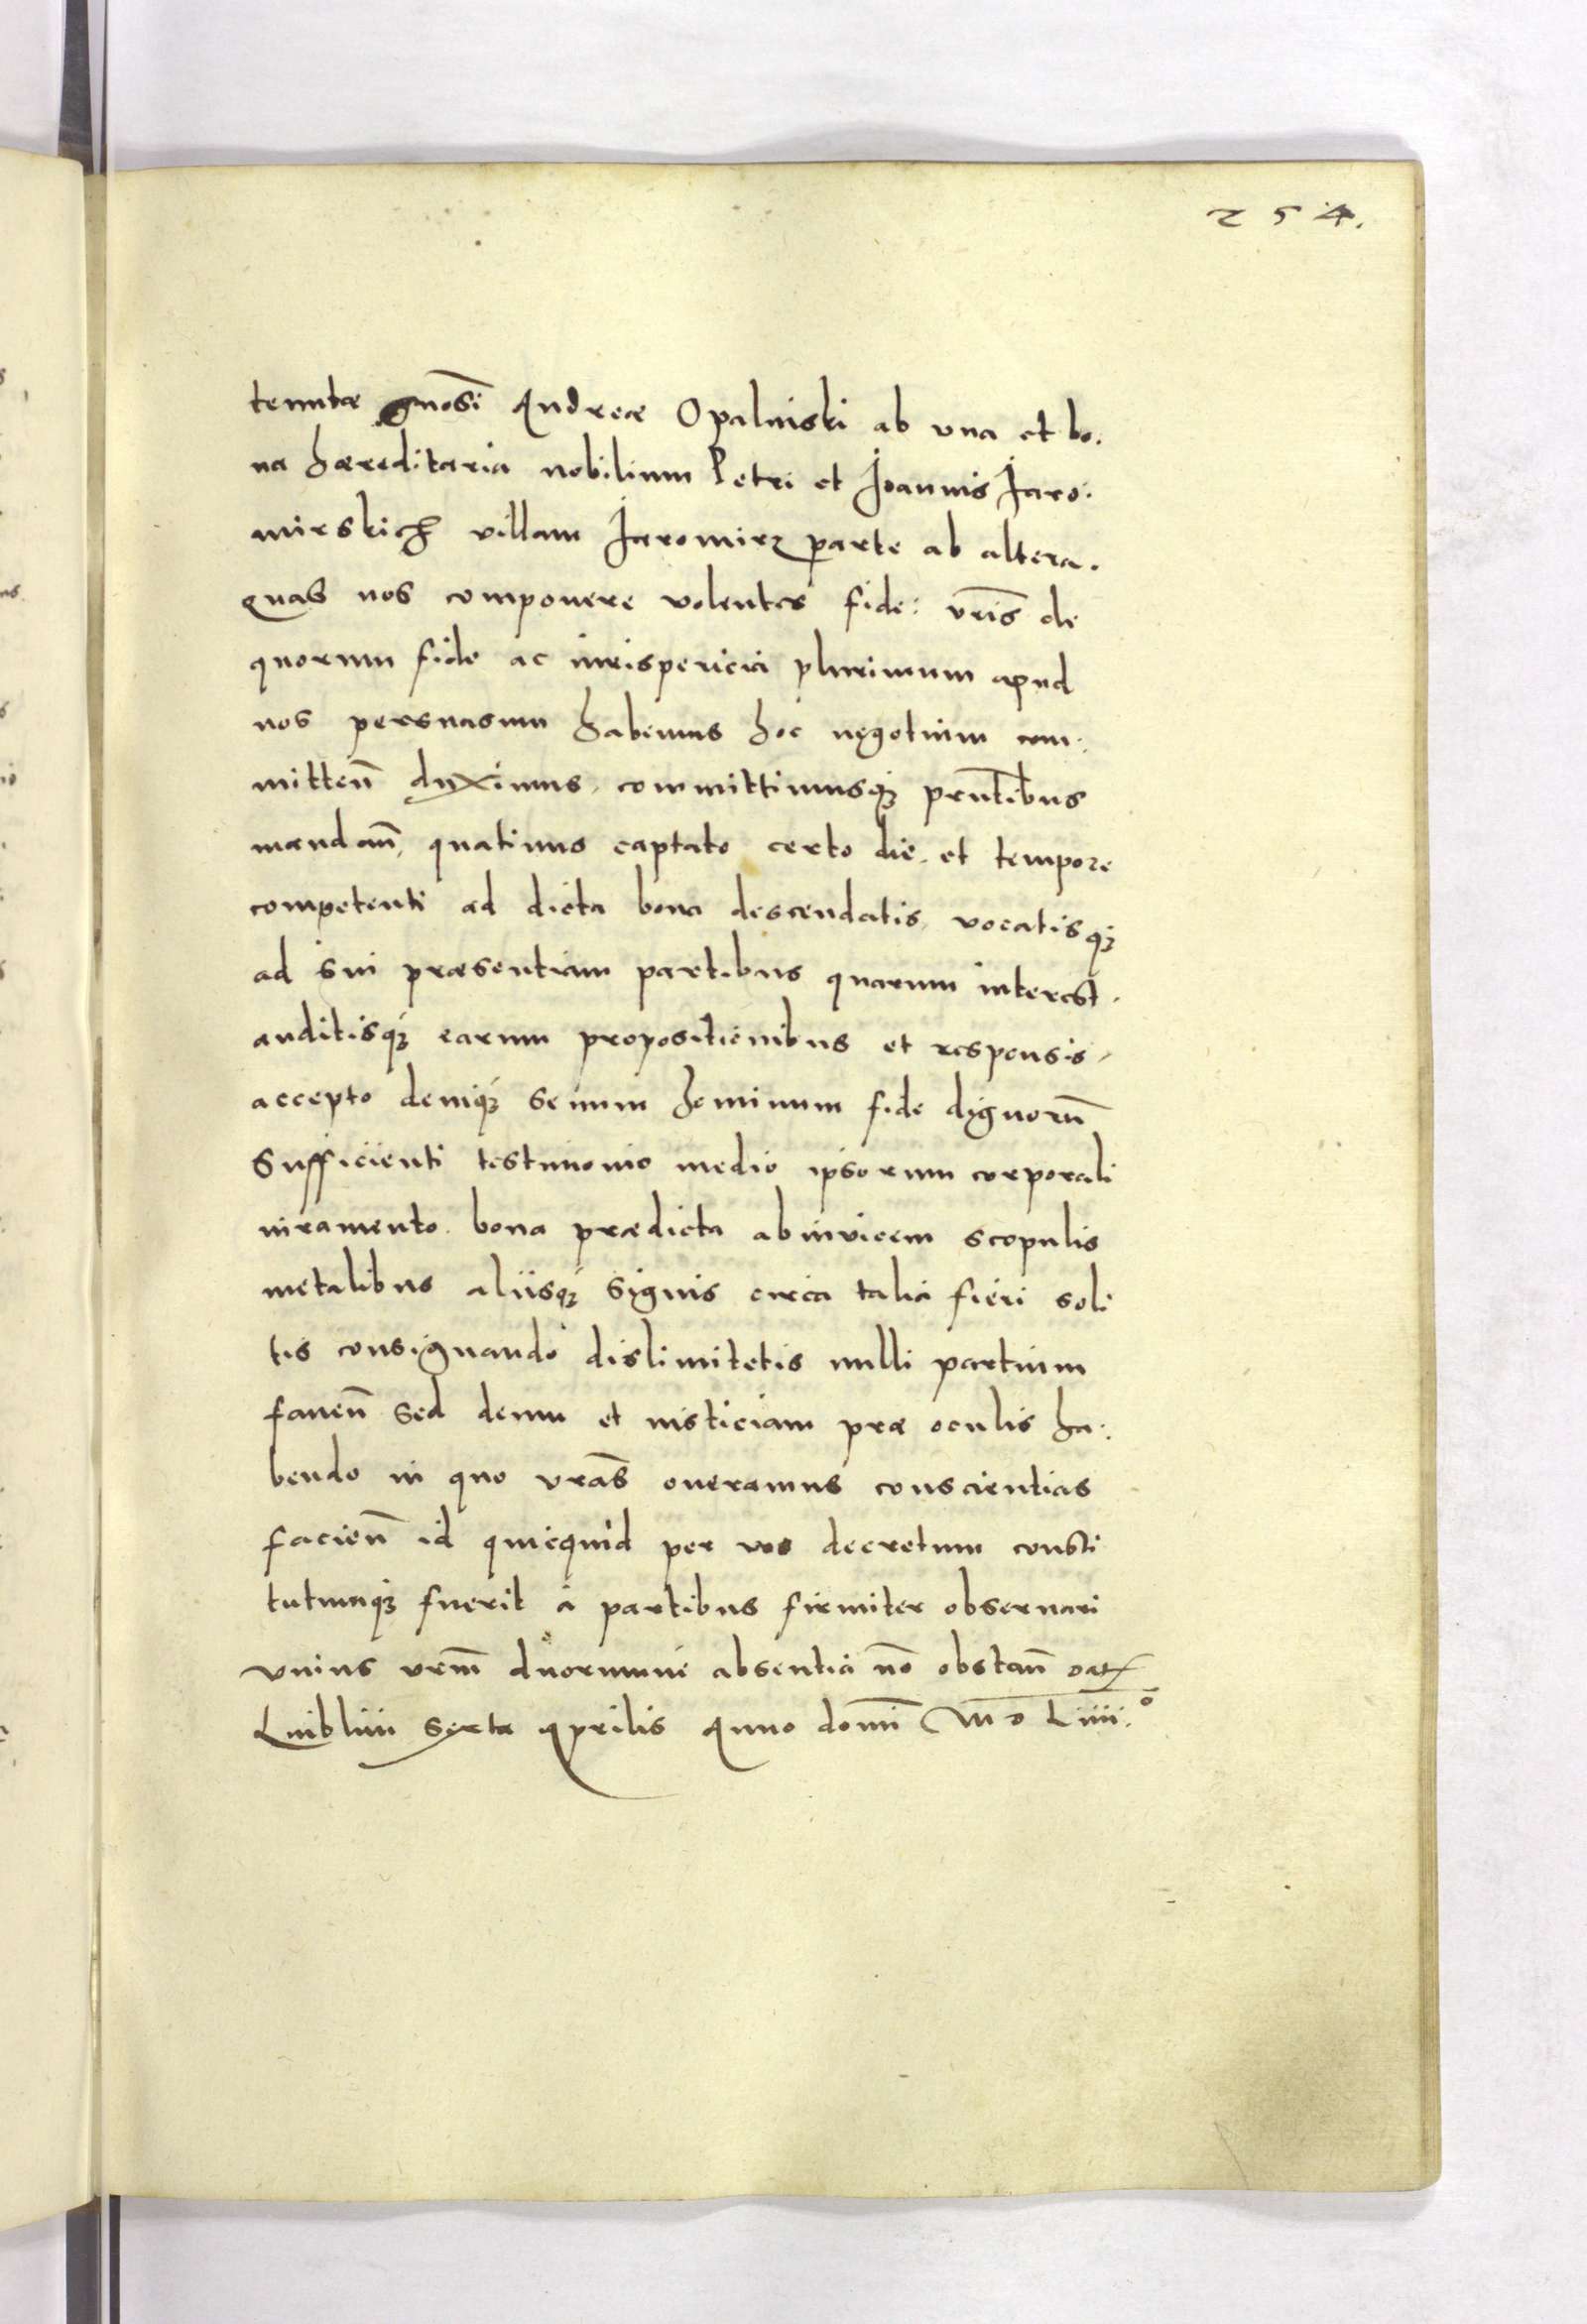 254.
tenutæ gnosi Andreæ Opalniski ab vna et bo.
na hæreditaria nobilium Petri et Joannis Jaro.
mirskich villam Jaromirz parte ab altera.
quas nos componere volentes fide: vris de
quorum fide ac iurispericia plurimum apud
nos persuasum habemus hoc negotium com:
mitten duximus, committimusq3 prntibus
mandan, quatinus captato certo die. et tempore
competenti ad dicta bona descendatis, vocatisq3
ad sui præsentiam partibus quarum interest.
auditisq3 earum propositionibus et responsis,
accepto deniq3 senum hominum fide dignorum
sufficienti testimonio medio ipsorum corporali
iuramento. bona prædicta abinvicem scopulis
metalibus aliisq3 signis circa talia fieri soli
tis consignando dislimitetis nulli partium
faven sed deum et iusticiam præ oculis ha:
bendo in quo vras oneramus conscientias
facien id quicquid per vos decretum consti
tutumq3 fuerit à partibus firmiter observari
vnius vrm duorumve absentia no obstan Dat
Luiblini sexta Aprilis Anno domi MD Liiii.o